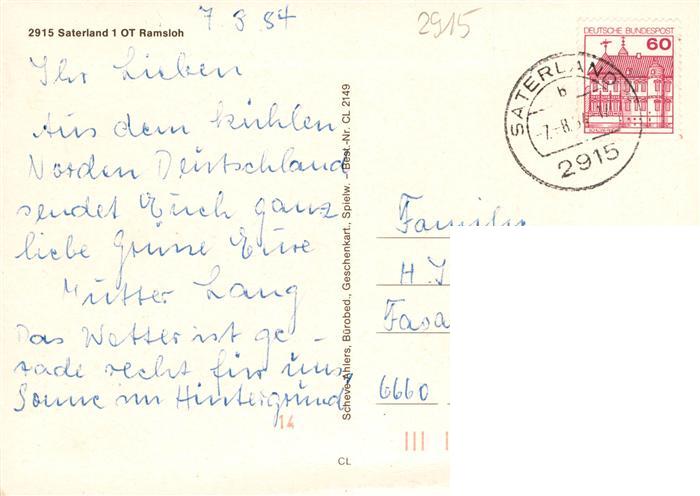 7. 8 84
2915
2915 Saterland 1 OT Ramsloh
Ihr Lieben
Aus dem kühlen
Norden Deutschland
sendet Euch ganz
liebe Grüsse Eure
Mutter Lang
Das Wetter ist ge-
rade recht für uns
Sonne im Hintergrund
14
Scheve-Ahlers, Bürobed., Geschenkart., Spielw. – Best.-Nr. CL 2149
CL
DEUTSCHE BUNDESPOST
60
SATERLAND
b
-7.-8.
2915
Familie
H. J
Fasa
6660